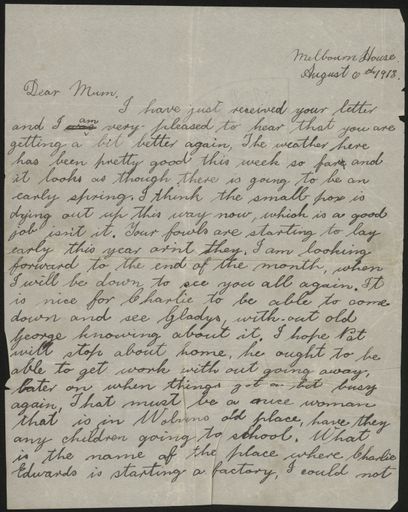 Melbourn House
August 1913.
Dear Mum,
I have just received your letter
and I am very pleased to hear that you are
getting a bit better again, The weather here
has been pretty good this week so far, and
it looks as though there is going to be an
early spring. I think the small pox is
dying out up this way now, which is a good
job isnt it. Your fowls are starting to lay
early this year arnt they. I am looking
forward to the end of the month, when
I will be down to see you all again. It
is nice for Charlie to be able to come
down and see Gladys, with-out old
George knowing about it. I hope Pat
will stop about home, he ought to be
able to get work with out going away,
later on when things get a bit busy
again, That must be a nice woman
that is in old place, have they
any children going to school. What
is the name of the place where Charlie
Edwards is starting a factory, I could not